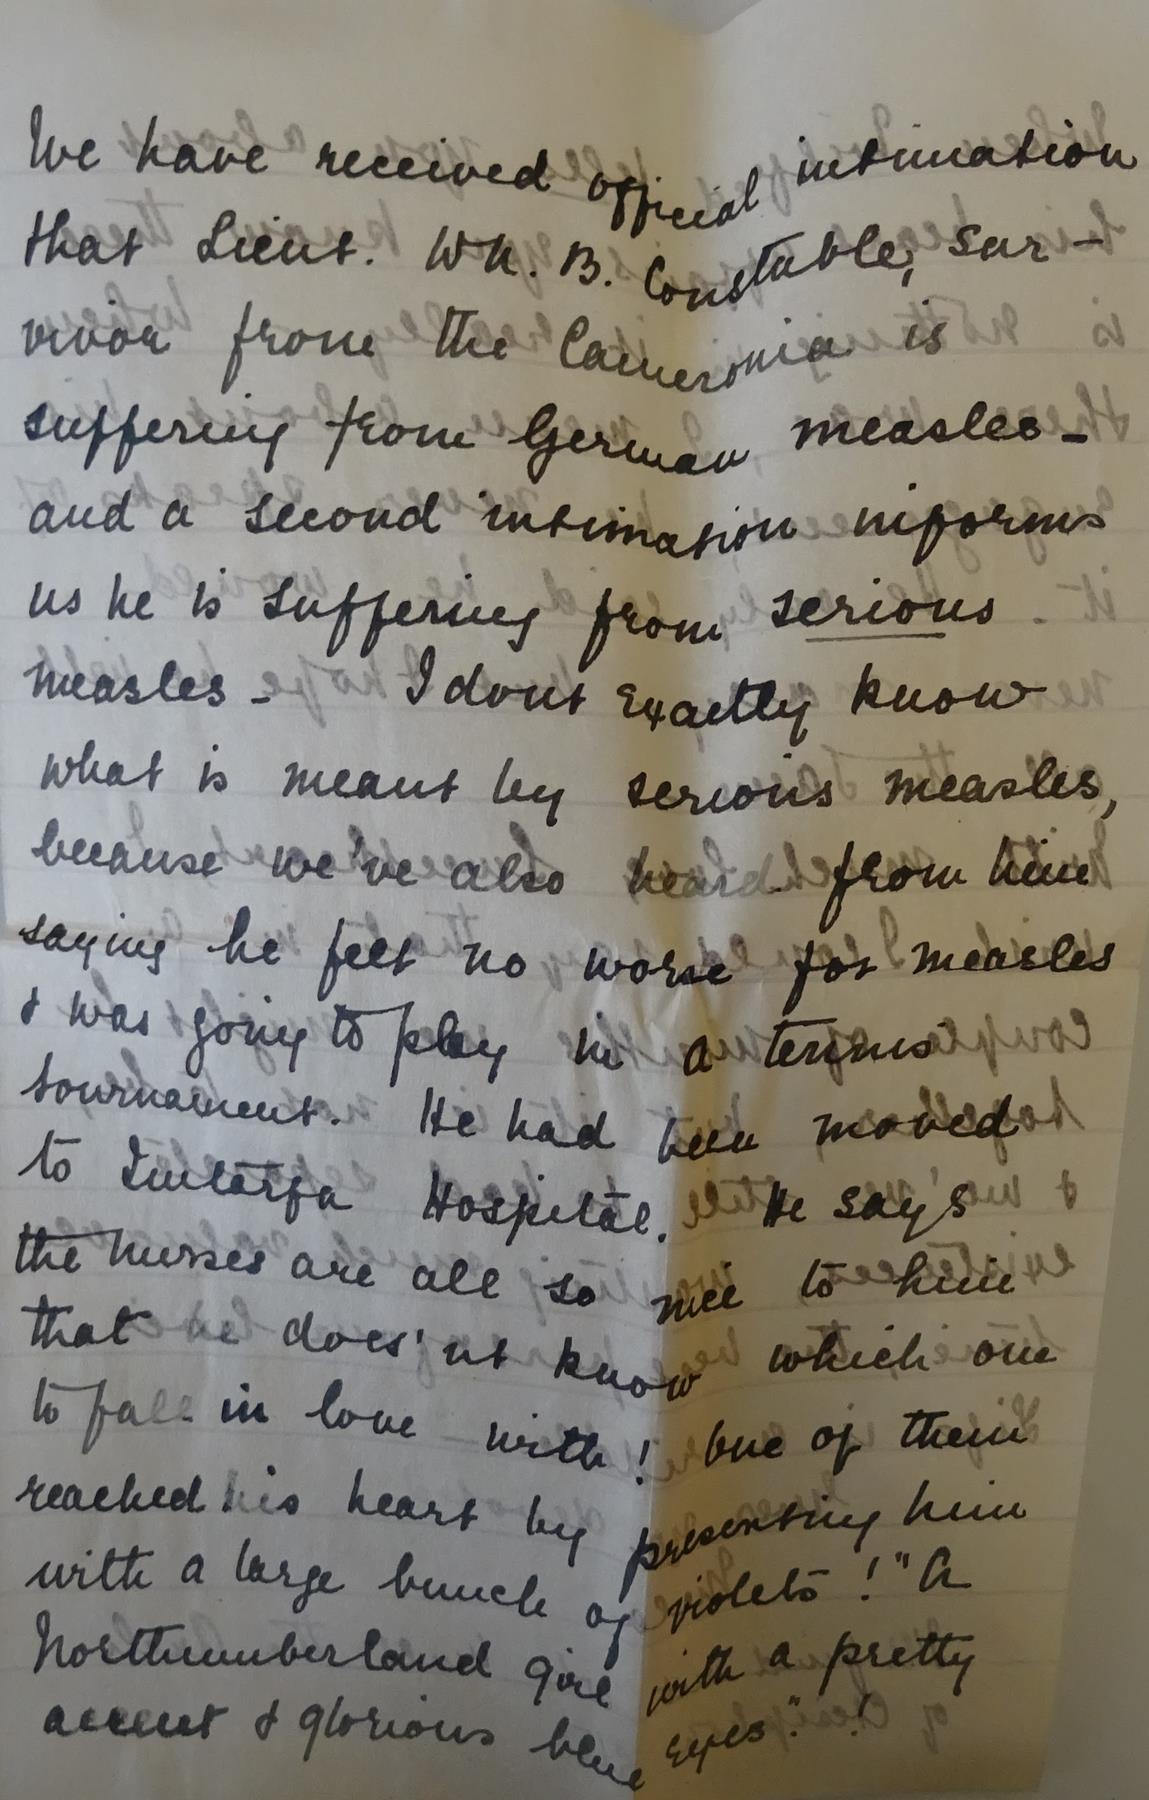 We have received official intimation
that Lieut. Wm. B. Constable, sur-
vivor from the Cameronia is
suffering from German measles -
and a second intimation informs
us he is suffering from serious
measles - I dont exactly know
what is meant by serious measles,
because we've also heard from him
saying he felt no worse for measles
& was going to play in a tennis
tournament. He had been moved
to Imtarfa Hospital. He says
the nurses are all so nice to him
that he does'nt know which one
to fall in love with! One of them
reached his heart by presenting him
with a large bunch of violets! "A
Northumberland girl with a pretty
accent & glorious blue eyes"!